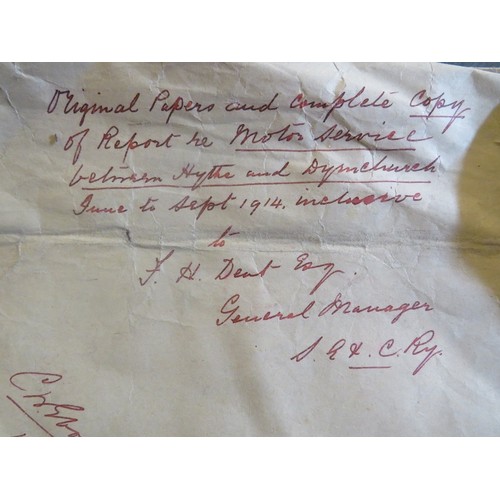 Original Papers and complete Copy
of Report re Motor Service
between Hythe and Dymchurch
June to Sept 1914. inclusive
to
F. H. Dent Esq.
General Manager
S. E & C. Ry.